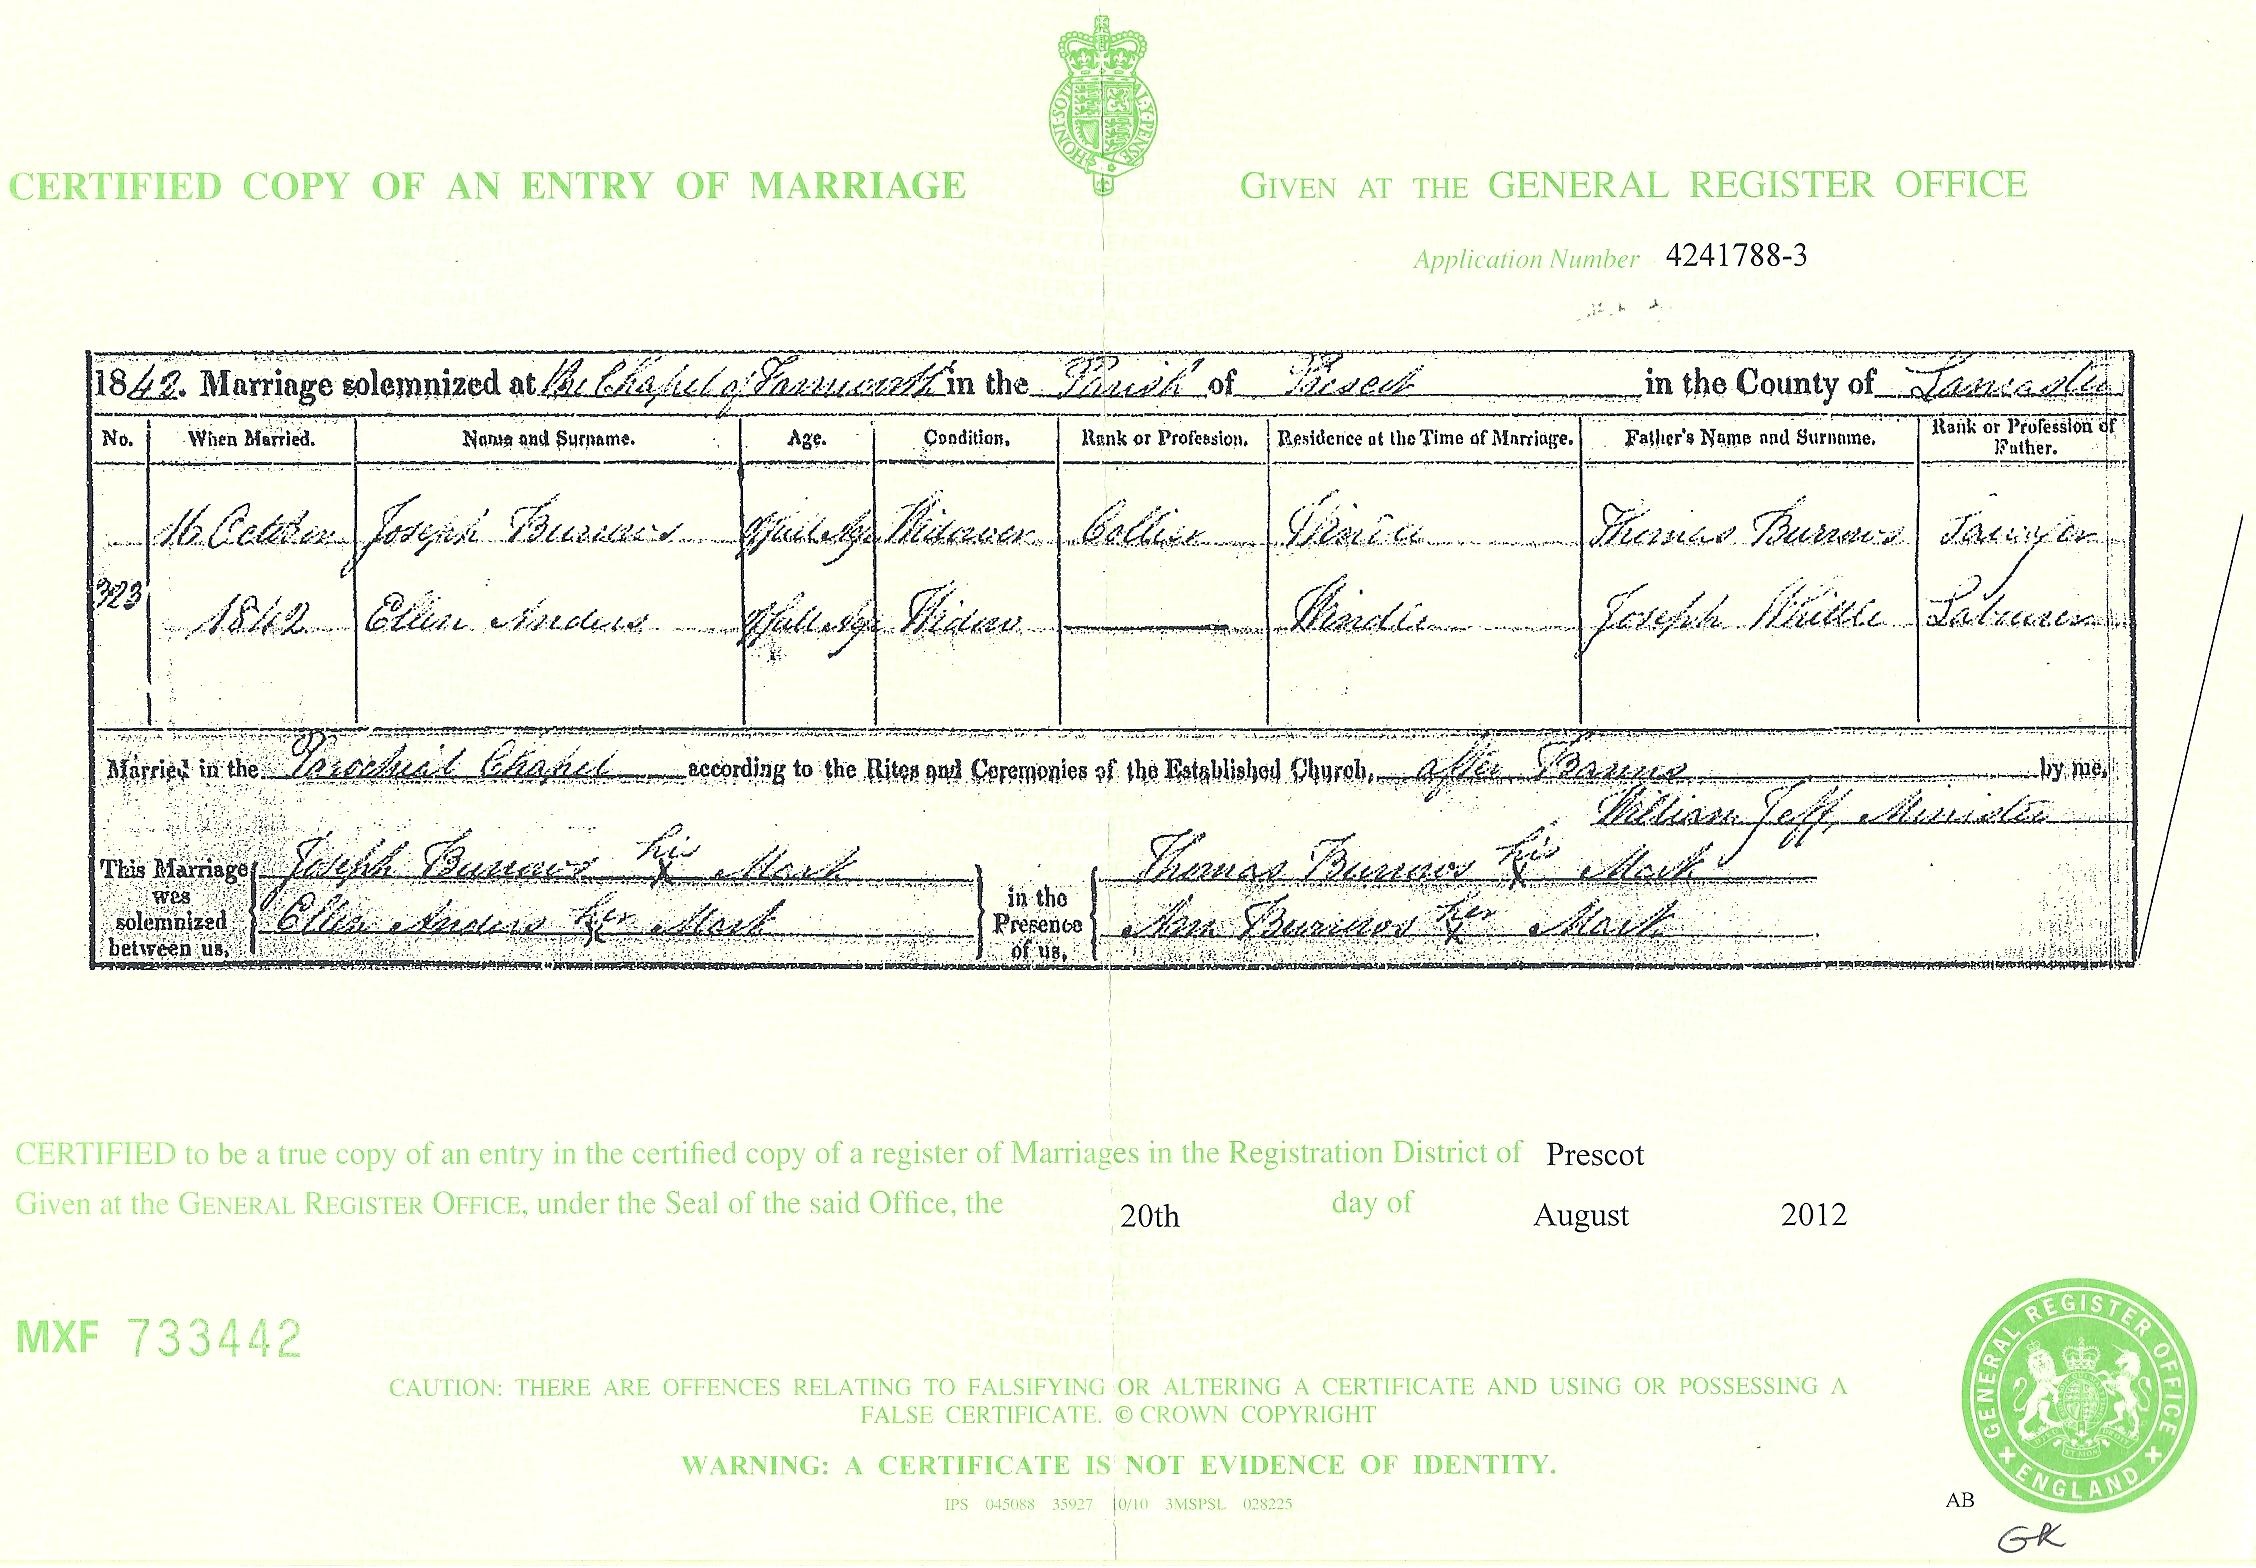 HONI SOIT QUI MAL Y PENSE
CERTIFIED COPY OF AN ENTRY OF MARRIAGE
GIVEN AT THE GENERAL REGISTER OFFICE
Application Number 4241788-3
1842. Marriage solemnized at the Chapel of Farnworth in the Parish of Prescot in the County of Lancaster
No. When Married. Name and Surname. Age. Condition. Rank or Profession. Residence at the Time of Marriage. Father's Name and Surname. Rank or Profession of Father.
16 October Joseph Burrows Full Age Widower Collier Windle Thomas Burrows Sawyer
323 1842 Ellen Anders Full Age Widow Windle Joseph Whittle Labourer
Married in the Parochial Chapel according to the Rites and Ceremonies of the Established Church, after Banns by me,
William Jeff, Minister
This Marriage was solemnized between us, Joseph Burrows his X Mark
Ellen Anders her X Mark
in the Presence of us, Thomas Burrows his X Mark
Ann Burrows her X Mark
CERTIFIED to be a true copy of an entry in the certified copy of a register of Marriages in the Registration District of Prescot
Given at the GENERAL REGISTER OFFICE, under the Seal of the said Office, the 20th day of August 2012
MXF 733442
CAUTION: THERE ARE OFFENCES RELATING TO FALSIFYING OR ALTERING A CERTIFICATE AND USING OR POSSESSING A
FALSE CERTIFICATE. © CROWN COPYRIGHT
WARNING: A CERTIFICATE IS NOT EVIDENCE OF IDENTITY.
IPS 045088 35927 10/10 3MSPSL 028225
GENERAL REGISTER OFFICE
ENGLAND
AB
GK